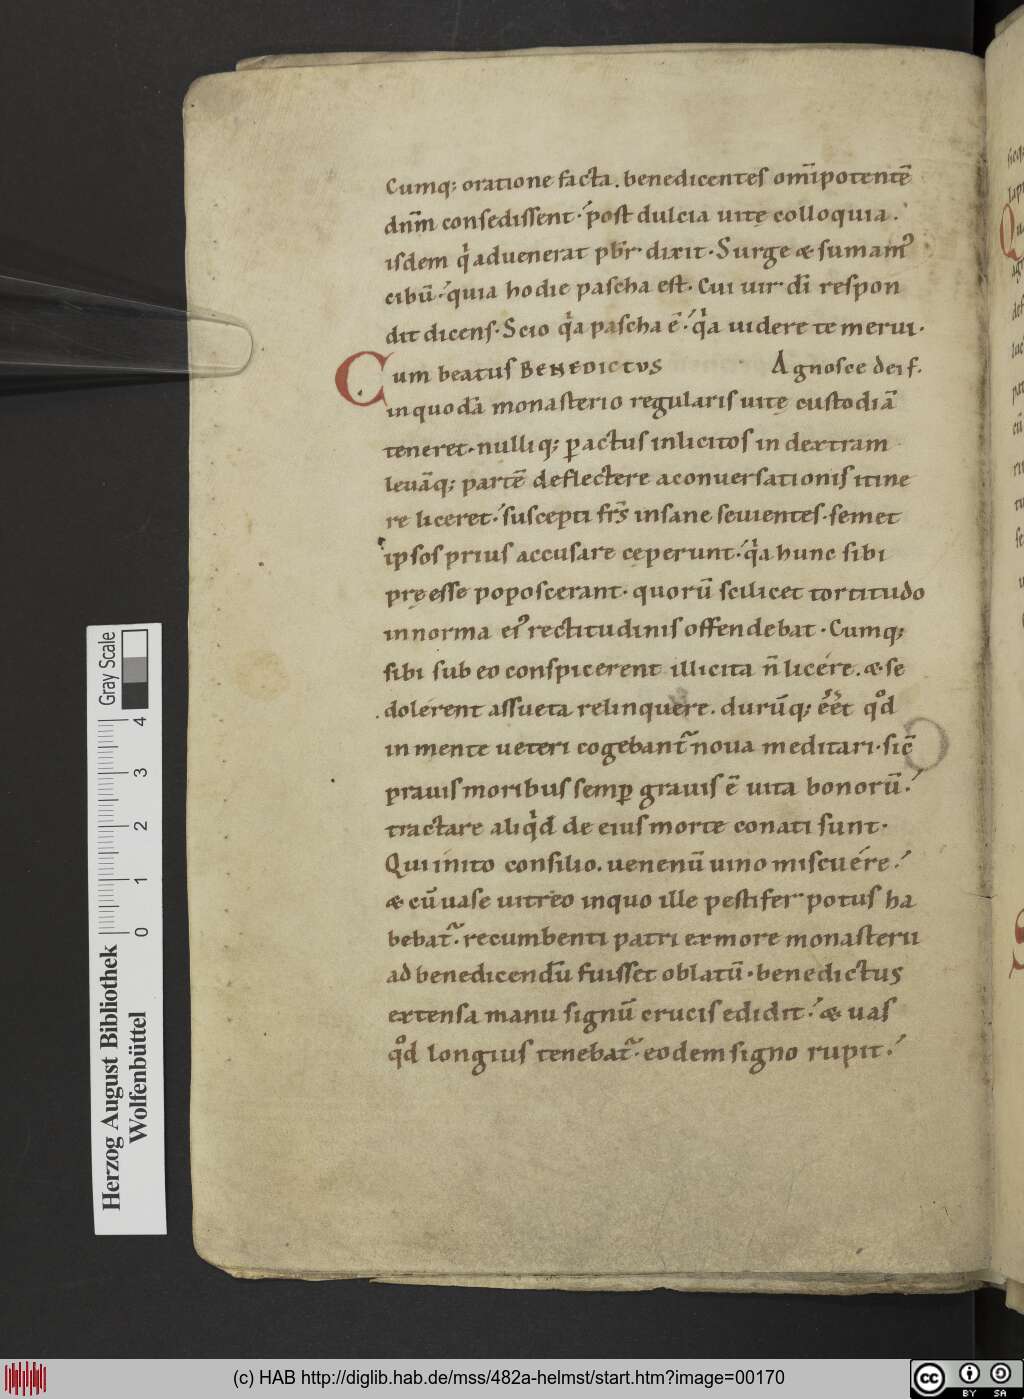 Cumq; oratione facta. benedicentes om̅ipotente̅
dn̅m consedissent· post dulcia uitę colloquia.
isdem q͛ aduenerat pb͛r dixit· Surge & sumam᾿
cibu̅· quia hodie pascha est. Cui uir di̅ respon
dit dicens· Scio qͥa pascha e̅· qͥa uidere te merui·
Cum beatus BENEDICTUS Agnosce dei f.
in quoda̅ monasterio regularis uitę custodia̅
teneret· nulliq; ꝑ actus inlicitos in dextram
leua̅q; parte̅ deflectere a conuersationis itine
re liceret· suscepti fr̅s insane seuientes· semet
ipsos prius accusare ceperunt· qͥa hunc sibi
pręesse poposcerant· quoru̅ scilicet tortitudo
in norma ei᾿ rectitudinis offendebat· Cumq;
sibi sub eo conspicerent illicita n̅ licére. & se
dolérent assueta relinquere. duru̅q; e͛e͛t qͦd
in mente ueteri cogebant᷑ noua meditari· sic̅
prauis moribus semꝑ grauis e̅ uita bonoru̅·
tractare aliqͥd de eius morte conati sunt·
Qui inito consilio. uenenu̅ uino miscuére·
& cu̅ uase uitreo in quo ille pestifer potus ha
bebat᷑· recumbenti patri ex more monasterii
ad benedicendu̅ fuisset oblatu̅· benedictus
extensa manu signu̅ crucis edidit· & uas
qͦd longius tenebat᷑· eodem signo rupit·
Gray Scale
0 1 2 3 4
Herzog August Bibliothek
Wolfenbüttel
(c) HAB http://diglib.hab.de/mss/482a-helmst/start.htm?image=00170
cc BY SA